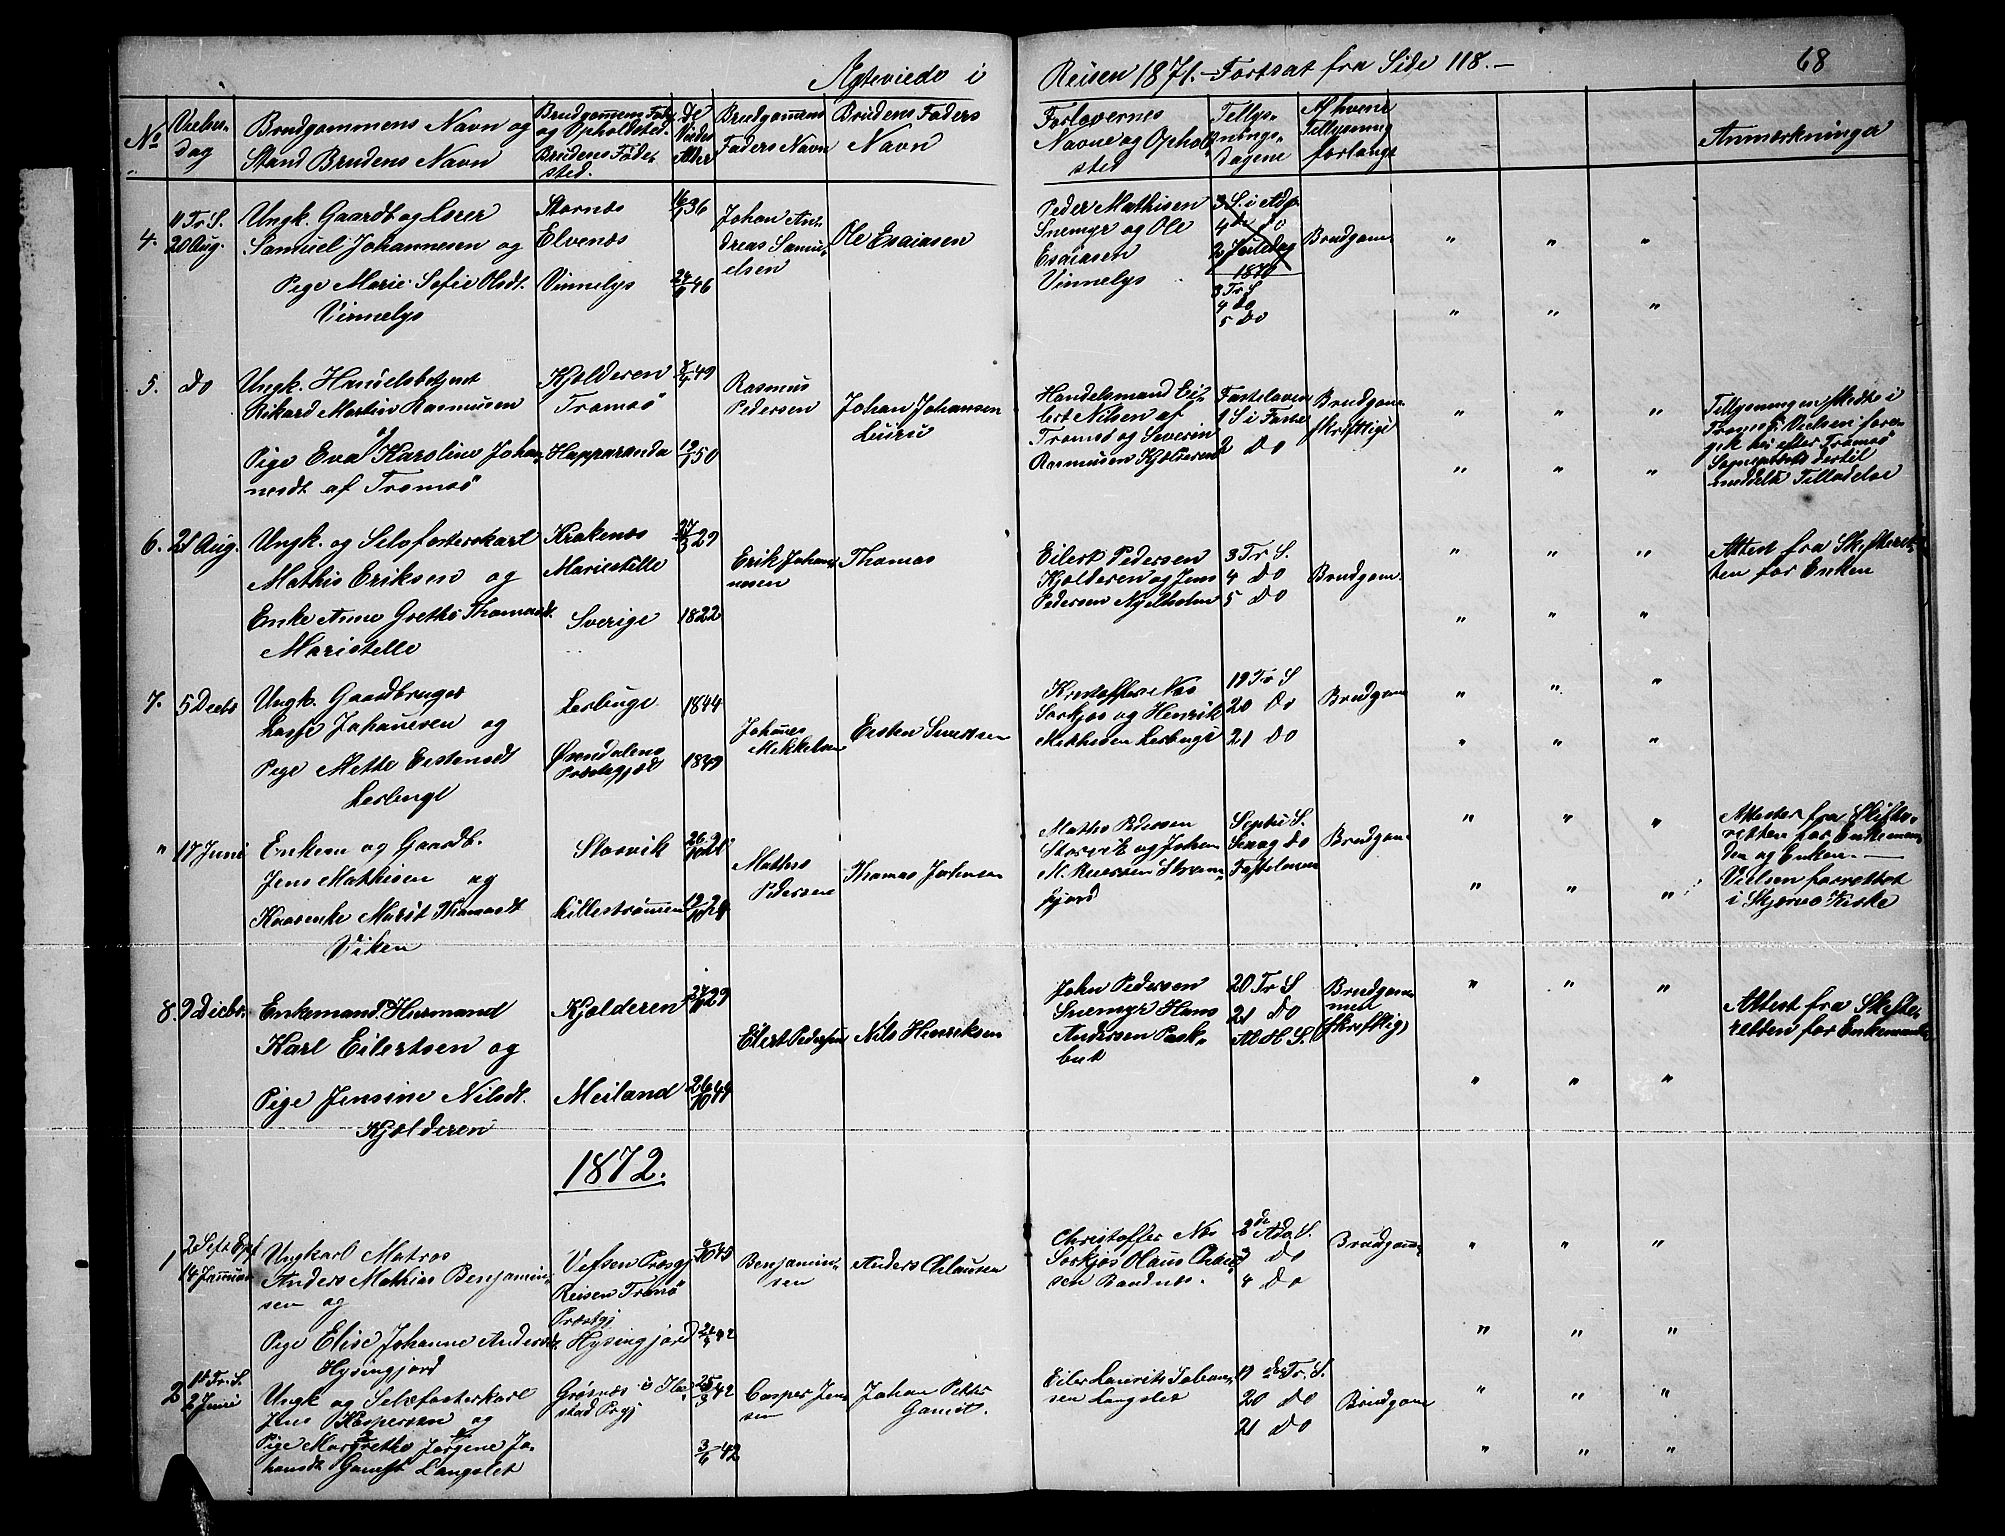 Ægteviede i Reisen 1871. – Fortsat fra Side 118. –
68
No Vielses- Dag
Brudgommens Navn og
Stand Brudens Navn
Brudgommens Føde
og Opholdsted.
Brudens Føde-
sted.
De Viedes Alder
Brudgommens
Faders Navn
Brudens Faders
Navn
Forlovernes
Navne og Ophold
sted
Tillys-
nings-
dagene
Af hvem
Tillysning
forlangt
Anmerkninger
4. 11 Tr. S. 20 Aug.
Ungk. Gaardb og Lærer
Samuel Johannesen og
Pige Marie Sofie Olsdt.
Vinnelys
Stornes
Elvenes
Vinnelys
16/1 36
24/9 46
Johan An-
dreas Samu-
elsen
Ole Esaiasen
Peder Mathisen
Snemyr og Ole
Esaiasen
Vinnelys
3 S. i Adv.
4 de do
2 Juledag
1870
3 Tr. S
4 do
5 Do
Brudgom.
5. Do
Ungk. Handelsbetjent
Rikard Martin Rasmusen
Pige Eva Karoline Johan-
nesdt af Tromsø
Kjelderen
Tromsø
Happaranda
49
50
Rasmus
Pedersen
Johan Johansen
Handelsmand Eil-
bert Nilsen af
Tromsø og Severin
Rasmusen Kjelderen
Fastelaven
1 S i Faste
2 Do
Brudgom
skriftligt
Tillysningen skedte i
Tromsø; Vielsen fore-
gik her efter Tromsø
Sognepræsts dertil
meddelte Tilladelse
6. 21 Aug.
Ungk. og Selvfosterskarl
Mathis Eriksen og
Enke Anne Grethe Thomasdt.
Maristelle
Krakenes
Mariestille
Sverige
27/3 29
1822
Erik Johan-
nesen
Thomas
Eilert Pedersen
Kjelderen og Jens
Pedersen Nyelholm
3 Tr S.
4 Do
5 Do
Brudgom.
Attest fra Skifteret-
ten for Enken
7. 5 Decbr
Ungk. Gaardbruger
Lasse Johannesen og
Pige Mette Eestensdt
Lerbugt
Lerbugt
Præstegjeld
1844
1849
Johannes
Mikkelsen
Eesten Svertsen
Kristoffer Næs
Sørkjos og Henrik
Mathesen Lerbugt
19 Tr S
20 Do
21 Do
Brudgom
" 17 Juni
Enkem og Gaardb.
Jens Mathesen og
Koneenke Marit Thomasdt
Viken
Storvik
Lillestrømmen
Mathis
Pedersen
Thomas Johnsen
Mathis Pedersen
Storvik og Johan
fjord
Septu S.
Sexag do
Fastelaven
Brudgom
Attester fra Skifte-
retten for Enkeman-
den og Enken. –
Vielsen forrettet
i Skjervø Kirke
8. 9 Decbr.
Enkemand Huusmand
Karl Eilertsen og
Pige Jensine Nilsdt.
Kjelderen
Kjelderen
Meiland
29
26/10 44
Eilert Pedersen
Nils Henriksen
John Pedersen
Snemyr Hans
Andersen Pask-
but
20 Tr S
21 Do
Al H S.
Brudgom-
men
(skriftlig)
Attest fra Skifte-
retten for Enkemanden
1872.
1
14 Januar
Ungkarl Matros
Anders Mathias Benjamin-
sen og
Pige Elise Johanne Andersdt.
Hysingjord
Vefsen Prsgj
Reisen Tromsø
Præstgj
Hysingjord
45
42
Benjamin-
sen
Anders Clausen
Christoffer Næs
Sørkjos Claus Andersen
sen Bandnes.
2 de Adv S.
3 Do
4 Do
Brudgom
2 1st Tr. S. 2 Juni
Ungk og Selvfosterkarl
Jens Kaspersen og
Pige Margrethe Jørgene Jo-
hansdt Garnit Langslet
Grøsnes i Ib-
stad Prgj
25/3 42
3/6 42
Casper Jen-
sen
Johan Petter
Garnit.
Eiler Laurits Johan-
sen Langslet
19 de Tr. S.
20 Do
21 Do
Brudgom